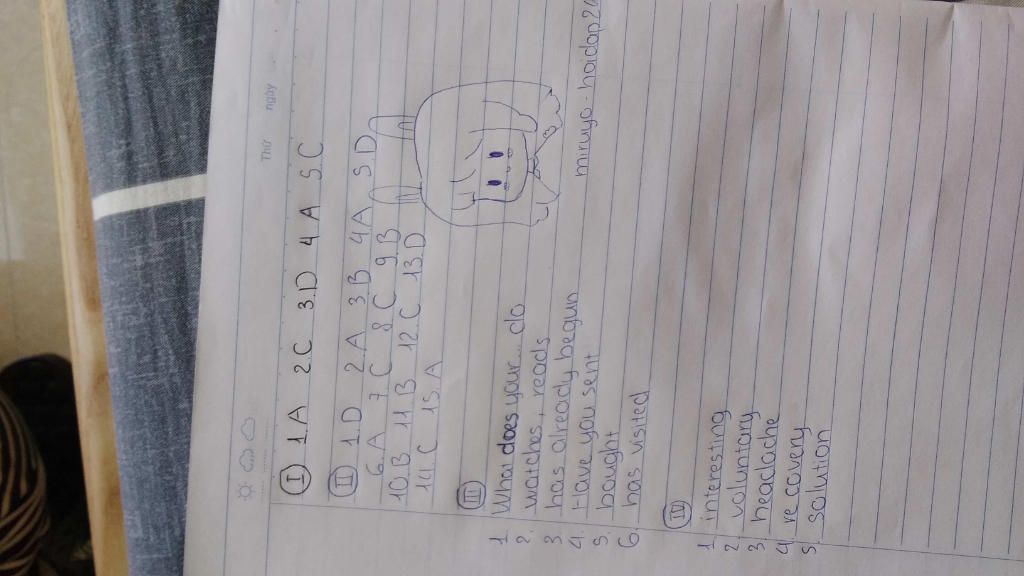 Thứ ngày
I 1A 2.C 3.D 4A 5.C
II 1.D 2A 3B 4A 5.D
6.A 7C 8C 9.B
10.B 11B 12.C 13.D
14.C 15.A
III
1 What does your... do
2. watches, reads
3. has already begun
4. Have you sent
5. bought
6. has visited
miruyo - hoidap24
IV
1 interesting
2. voluntary
3 headache
4 recovery
5 solution